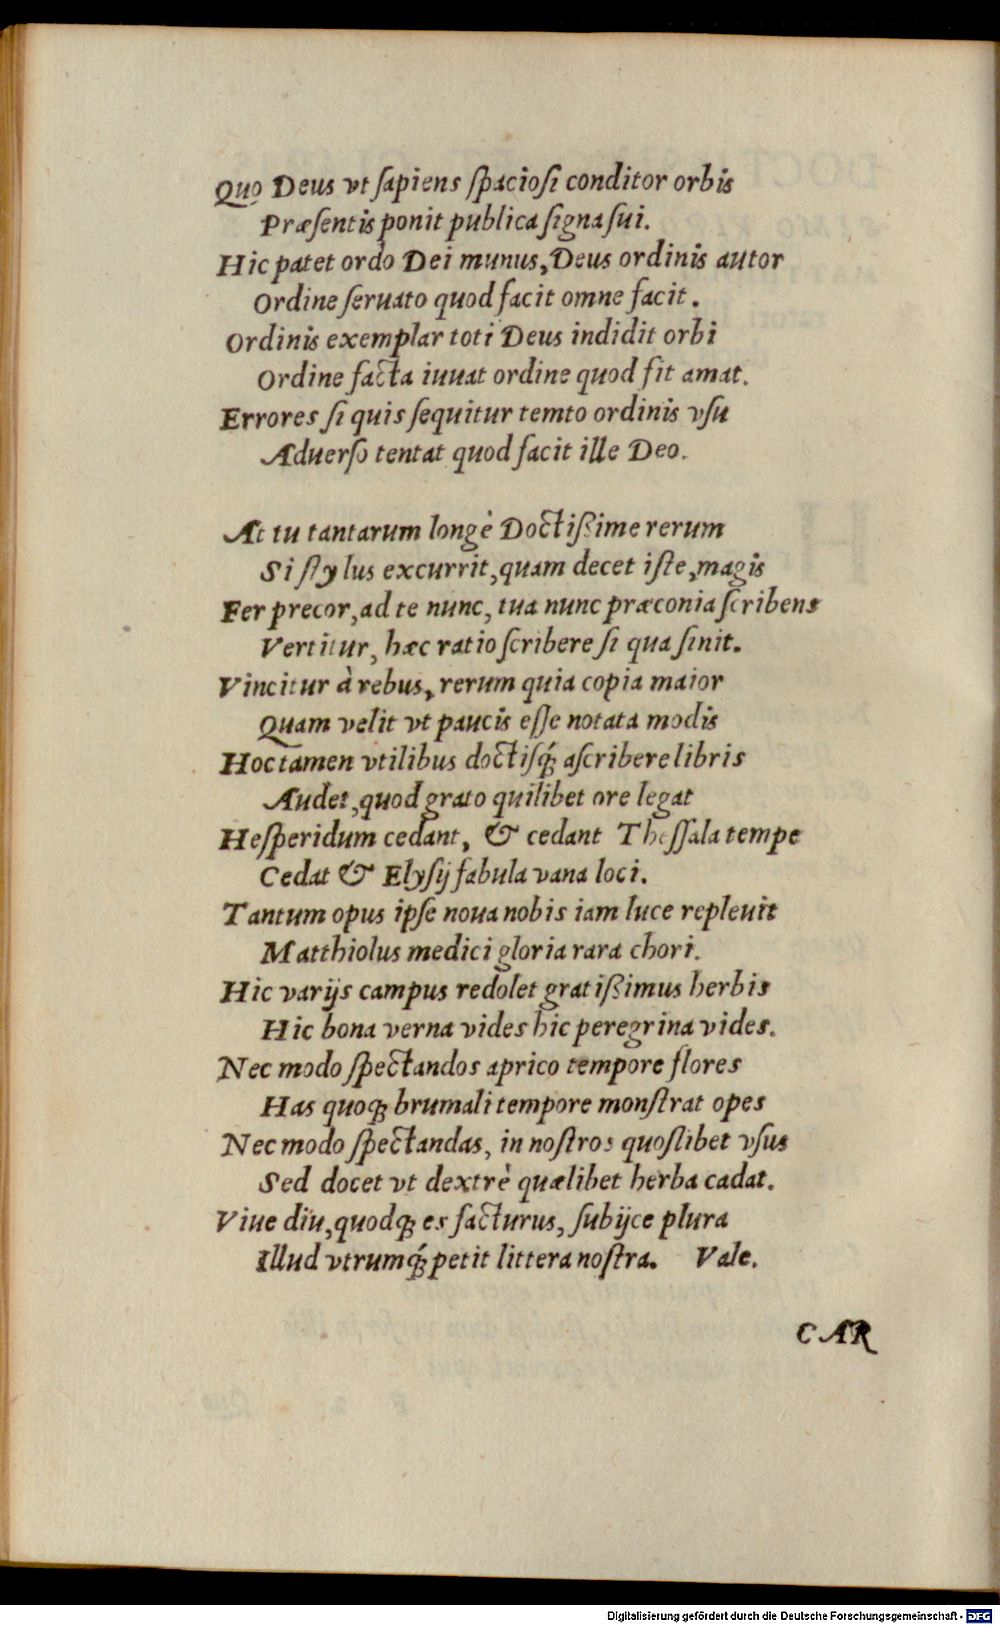 Quo Deus vt ſapiens ſpacioſi conditor orbis
Præſentis ponit publica ſigna ſui.
Hic patet ordo Dei munus, Deus ordinis autor
Ordine ſeruato quod facit omne facit.
Ordinis exemplar toti Deus indidit orbi
Ordine facta iuuat ordine quod fit amat.
Errores ſi quis ſequitur temto ordinis vſu
Aduerſo tentat quod facit ille Deo.
At tu tantarum longè Doctißime rerum
Si ſtylus excurrit, quam decet iſte, magis
Fer precor, ad te nunc, tua nunc præconia ſcribens
Vertitur, hæc ratio ſcribere ſi qua ſinit.
Vincitur à rebus, rerum quia copia maior
Quam velit vt paucis eſſe notata modis
Hoc tamen vtilibus doctiſq́; aſcribere libris
Audet, quod grato quilibet ore legat
Heſperidum cedant, & cedant Theſſala tempe
Cedat & Elyſij fabula vana loci.
Tantum opus ipſe noua nobis iam luce repleuit
Matthiolus medici gloria rara chori.
Hic varijs campus redolet gratißimus herbis
Hic bona verna vides hic peregrina vides.
Nec modo ſpectandos aprico tempore flores
Has quoq; brumali tempore monſtrat opes
Nec modo ſpectandas, in noſtros quoſlibet vſus
Sed docet vt dextrè quælibet herba cadat.
Viue diu, quodq; es facturus, ſubijce plura
Illud vtrumq́; petit littera noſtra. Vale.
CAR
Digitalisierung gefördert durch die Deutsche Forschungsgemeinschaft - DFG